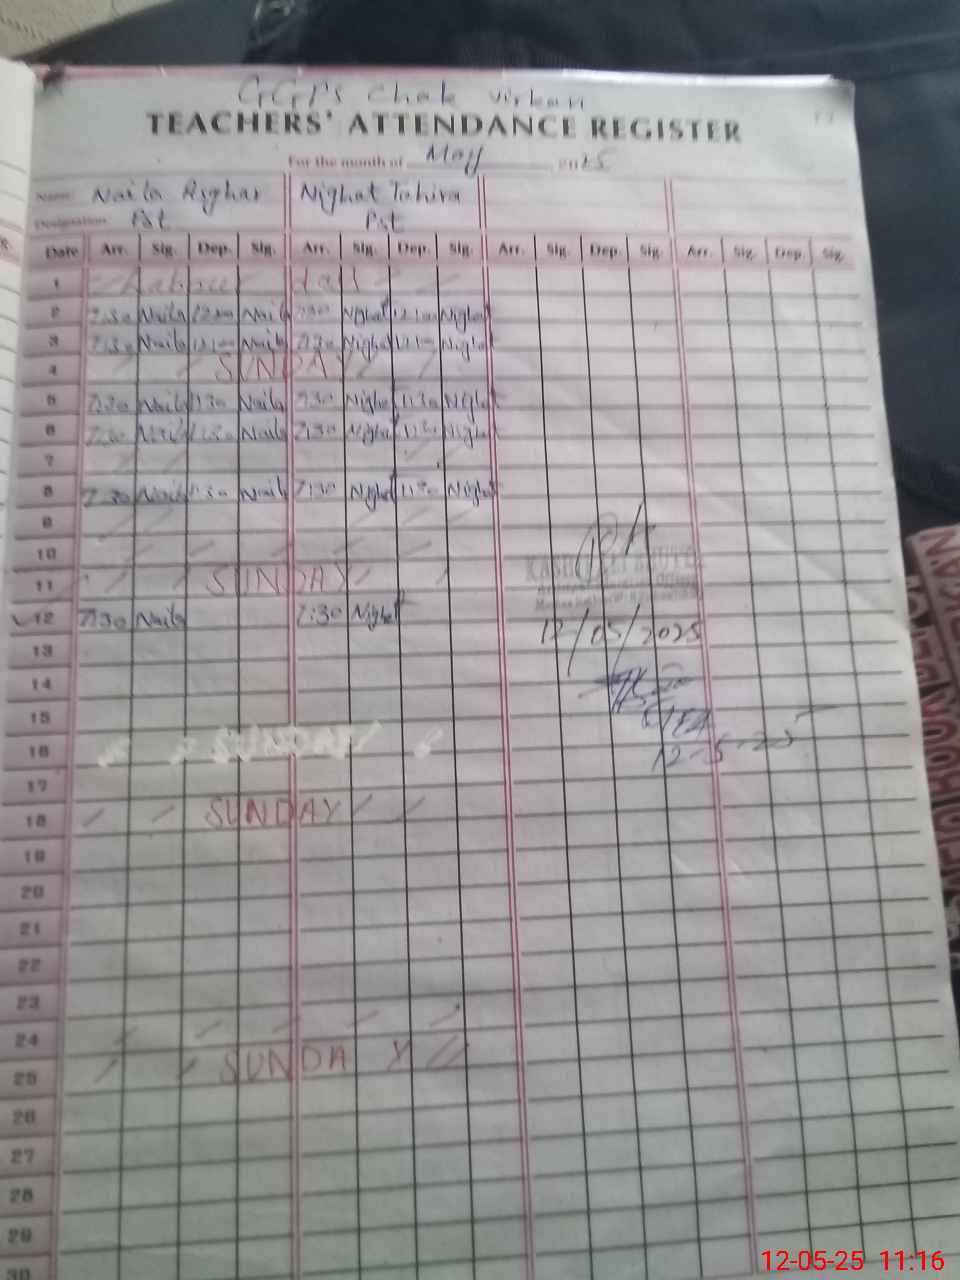 GGPS Chak Virkan
TEACHERS' ATTENDANCE REGISTER
For the month of May 2025
Name Naila Asghar Nighat Tahira
Designation Pst Pst
Date Arr. Sig. Dep. Sig. Arr. Sig. Dep. Sig. Arr. Sig. Dep. Sig. Arr. Sig. Dep. Sig.
1 Labour day
2 7:30 Naila 12:00 Naila 7:30 Nighat 12:00 Nighat
3 7:30 Naila 12:00 Naila 7:30 Nighat Nighat
4 SUNDAY
5 7:30 Naila 1:30 Naila 7:30 Nighat 1:30 Nighat
6 7:30 Naila 1:30 Naila 7:30 Nighat 1:30 Nighat
7
8 7:30 Naila 1:30 Naila 7:30 Nighat 1:30 Nighat
9
10
11 SUNDAY
12 7:30 Naila 7:30 Nighat
12/05/2025
13
14
15
16 SUNDAY
12-5-25
17
18 SUNDAY
19
20
21
22
23
24
25 SUNDAY
26
27
28
29
30
12-05-25 11:16